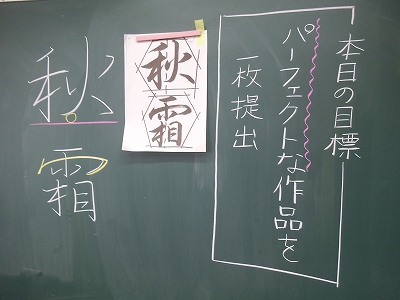 本日の目標
パーフェクトな作品を
一枚提出
秋霜
秋霜